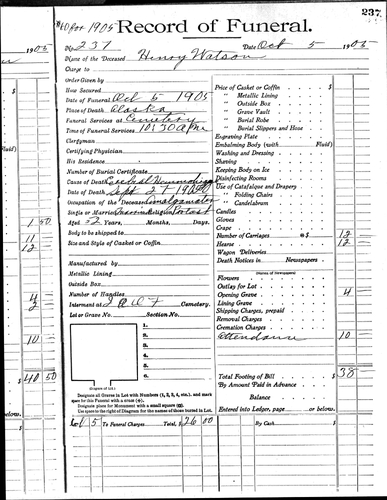 237
Record of Funeral.
No. 237 Date Oct 5 1905
Name of the Deceased Henry Watson
Charge to
Order Given by
How Secured
Date of Funeral Oct 5 1905
Place of Death Alaska
Funeral Services at Cemetery
Time of Funeral Services 10:30 a
Clergyman
Certifying Physician
His Residence
Number of Burial Certificate
Cause of Death
Date of Death Sept 27 1905
Occupation of the Deceased
Single or Married Religion
Aged 32 Years, Months, Days.
Body to be shipped to
Size and Style of Casket or Coffin
Manufactured by
Metallic Lining
Outside Box
Number of Handles
Interment at Cemetery.
Lot or Grave No. Section No.
1.
2.
3.
4.
5.
6.
Diagram of Lot
Designate all Graves in Lot with Numbers (1, 2, 3, etc.), and mark space for this Funeral with a cross (x).
Designate place for Monument with a small square (□).
Use space to the right of Diagram for the names of those buried in Lot.
To Funeral Charges Total, $26 00
Price of Casket or Coffin $
" Metallic Lining
" Outside Box
" Grave Vault
" Burial Robe
" Burial Slippers and Hose
Engraving Plate
Embalming Body (with Fluid)
Washing and Dressing
Shaving
Keeping Body on Ice
Disinfecting Rooms
Use of Catafalque and Drapery
" Folding Chairs
" Candelabrum
Candles
Gloves
Crape
Number of Carriages @$ 12
Hearse 12
Wagon Deliveries
Death Notices in Newspapers
(Names of Newspapers)
Flowers
Outlay for Lot
Opening Grave 4
Lining Grave
Shipping Charges, prepaid
Removal Charges
Cremation Charges
Attendance 10
Total Footing of Bill $38
By Amount Paid in Advance
Balance
Entered into Ledger, page or below.
By Cash $
1905
$
Fluid)
1 50
11
12
4
2
10
$40 50
below.